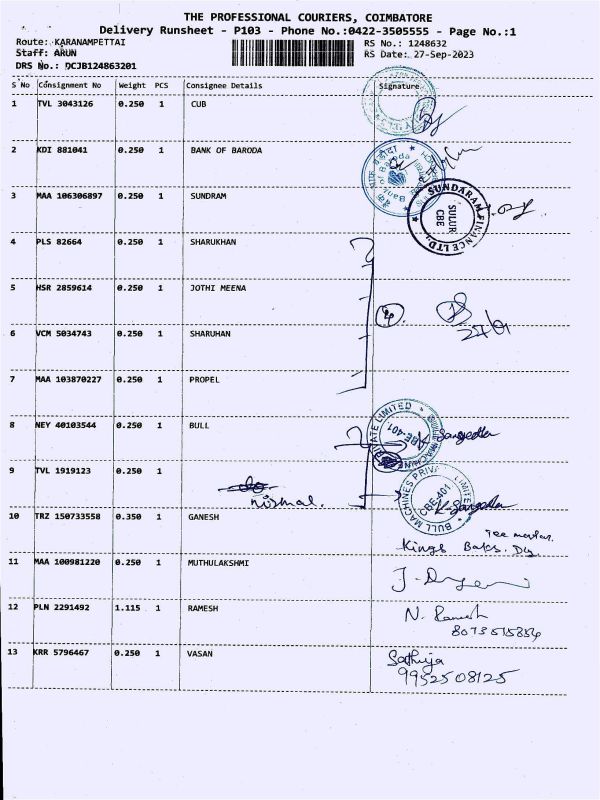 THE PROFESSIONAL COURIERS, COIMBATORE
Delivery Runsheet - P103 - Phone No.:0422-3505555 - Page No.:1
Route: KARANAMPETTAI RS No.: 1248632
Staff: ARUN RS Date: 27-Sep-2023
DRS No.: DCJB124863201
S No Consignment No Weight PCS Consignee Details Signature
1 TVL 3043126 0.250 1 CUB
2 KDI 881041 0.250 1 BANK OF BARODA
बैंक ऑफ़ बड़ौदा
Bank of Baroda
3 MAA 106306897 0.250 1 SUNDRAM
SUNDARAM FINANCE LTD.
SULUR
CBE
4 PLS 82664 0.250 1 SHARUKHAN
5 HSR 2859614 0.250 1 JOTHI MEENA
4
6 VCM 5034743 0.250 1 SHARUHAN
7 MAA 103870227 0.250 1 PROPEL
8 NEY 40103544 0.250 1 BULL
PRIVATE LIMITED
CBE-401
Sangeetha
9 TVL 1919123 0.250 1
BULL MACHINES PRIVATE LIMITED
CBE-401
K. Sangeetha
10 TRZ 150733558 0.350 1 GANESH
Kings
11 MAA 100981220 0.250 1 MUTHULAKSHMI
12 PLN 2291492 1.115 1 RAMESH
N. Ramesh
13 KRR 5796467 0.250 1 VASAN
Sathya
9952508125